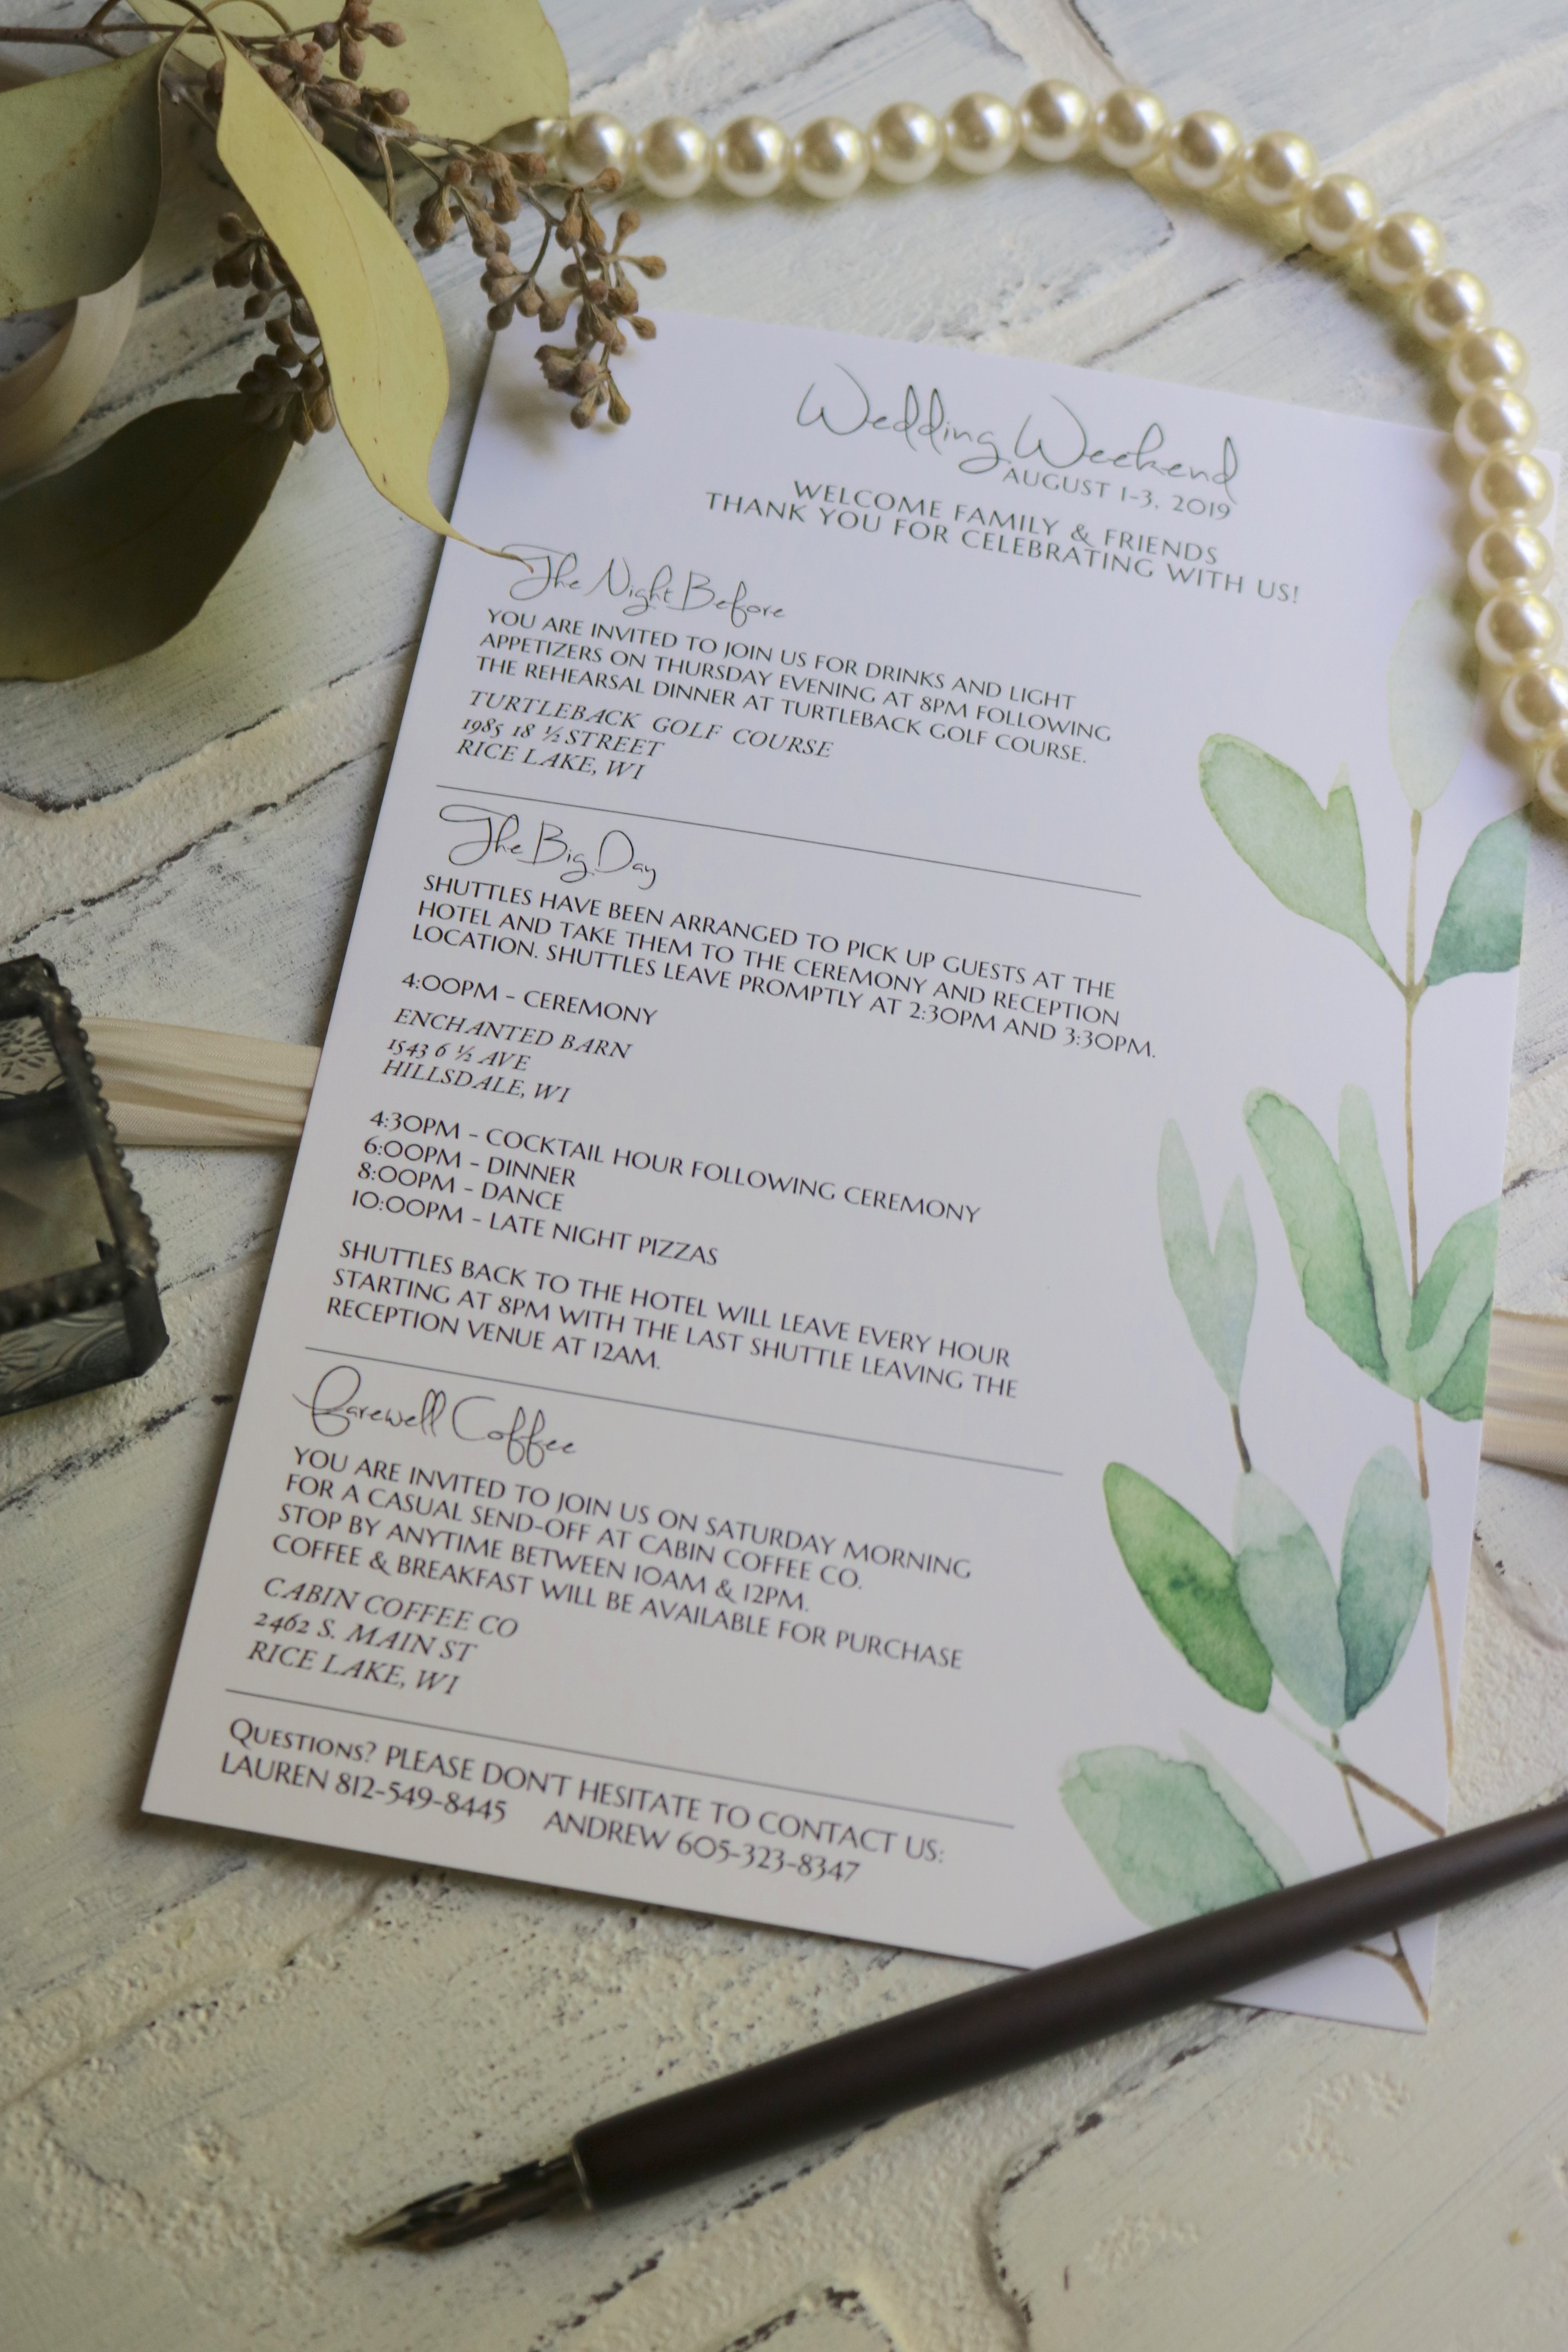 Wedding Weekend
AUGUST 1-3, 2019
WELCOME FAMILY & FRIENDS
THANK YOU FOR CELEBRATING WITH US!
The Night Before
YOU ARE INVITED TO JOIN US FOR DRINKS AND LIGHT
APPETIZERS ON THURSDAY EVENING AT 8PM FOLLOWING
THE REHEARSAL DINNER AT TURTLEBACK GOLF COURSE.
TURTLEBACK GOLF COURSE
1985 18 ½ STREET
RICE LAKE, WI
The Big Day
SHUTTLES HAVE BEEN ARRANGED TO PICK UP GUESTS AT THE
HOTEL AND TAKE THEM TO THE CEREMONY AND RECEPTION
LOCATION. SHUTTLES LEAVE PROMPTLY AT 2:30PM AND 3:30PM.
4:00PM - CEREMONY
ENCHANTED BARN
1543 6 ½ AVE
HILLSDALE, WI
4:30PM - COCKTAIL HOUR FOLLOWING CEREMONY
6:00PM - DINNER
8:00PM - DANCE
10:00PM - LATE NIGHT PIZZAS
SHUTTLES BACK TO THE HOTEL WILL LEAVE EVERY HOUR
STARTING AT 8PM WITH THE LAST SHUTTLE LEAVING THE
RECEPTION VENUE AT 12AM.
Farewell Coffee
YOU ARE INVITED TO JOIN US ON SATURDAY MORNING
FOR A CASUAL SEND-OFF AT CABIN COFFEE CO.
STOP BY ANYTIME BETWEEN 10AM & 12PM.
COFFEE & BREAKFAST WILL BE AVAILABLE FOR PURCHASE
CABIN COFFEE CO
2462 S. MAIN ST
RICE LAKE, WI
QUESTIONS? PLEASE DON'T HESITATE TO CONTACT US:
LAUREN 812-549-8445 ANDREW 605-323-8347